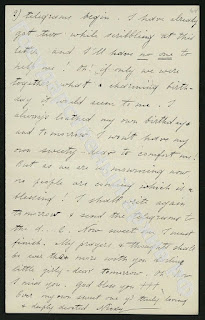 3/ telegrams begin. I have already
got two while scribbling at this
letter and I'll have no one to
help me! Oh! if only we were
together what a charming birth-
day it would seem to me. I
always loathed my own birthdays
and to-morrow I won't have my
own sweety-dear to comfort me.
But as we are in mourning now
no people are coming which is a
blessing! I shall write again
tomorrow & send the telegrams to
the d. C. Now sweet I must
finish. My prayers & thoughts shall
be and more with you darling
little girly-dear tomorrow. Oh!
I miss you. God bless you +++.
Ever my own sweet one yr truly loving
& deeply devoted Nicky